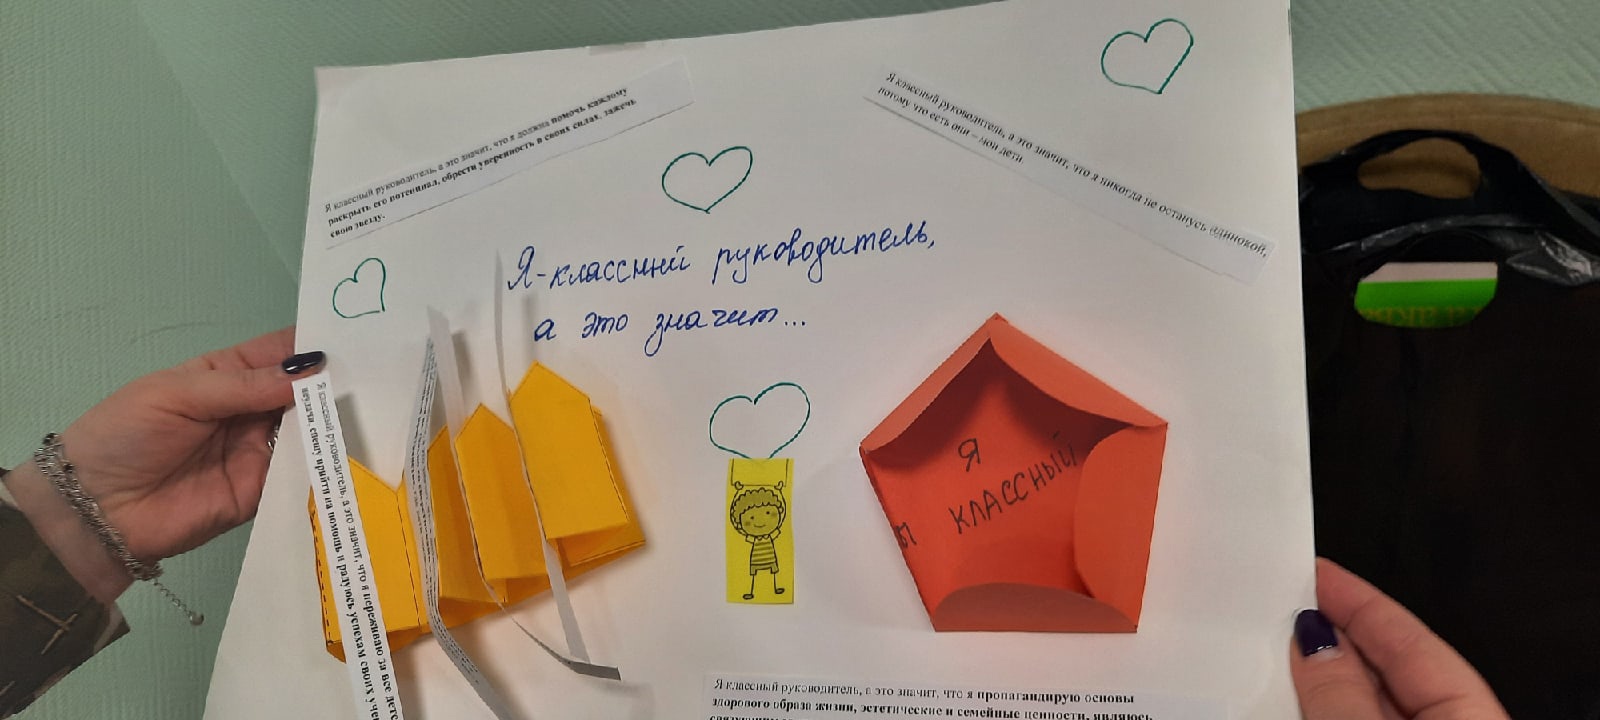 Я классный руководитель, а это значит, что я должна помочь каждому
раскрыть его потенциал, обрести уверенность в своих силах, зажечь
свою звезду.
Я классный руководитель, а это значит, что я никогда не останусь одинокой,
потому что есть они – мои дети
Я-классный руководитель,
а это значит...
Я классный руководитель, а это значит, что я переживаю за все
неудачи, спешу прийти на помощь и радуюсь успехам своих
Я
КЛАССНЫЙ
Я классный руководитель, а это значит, что я пропагандирую основы
здорового образа жизни, эстетические и семейные ценности, являюсь